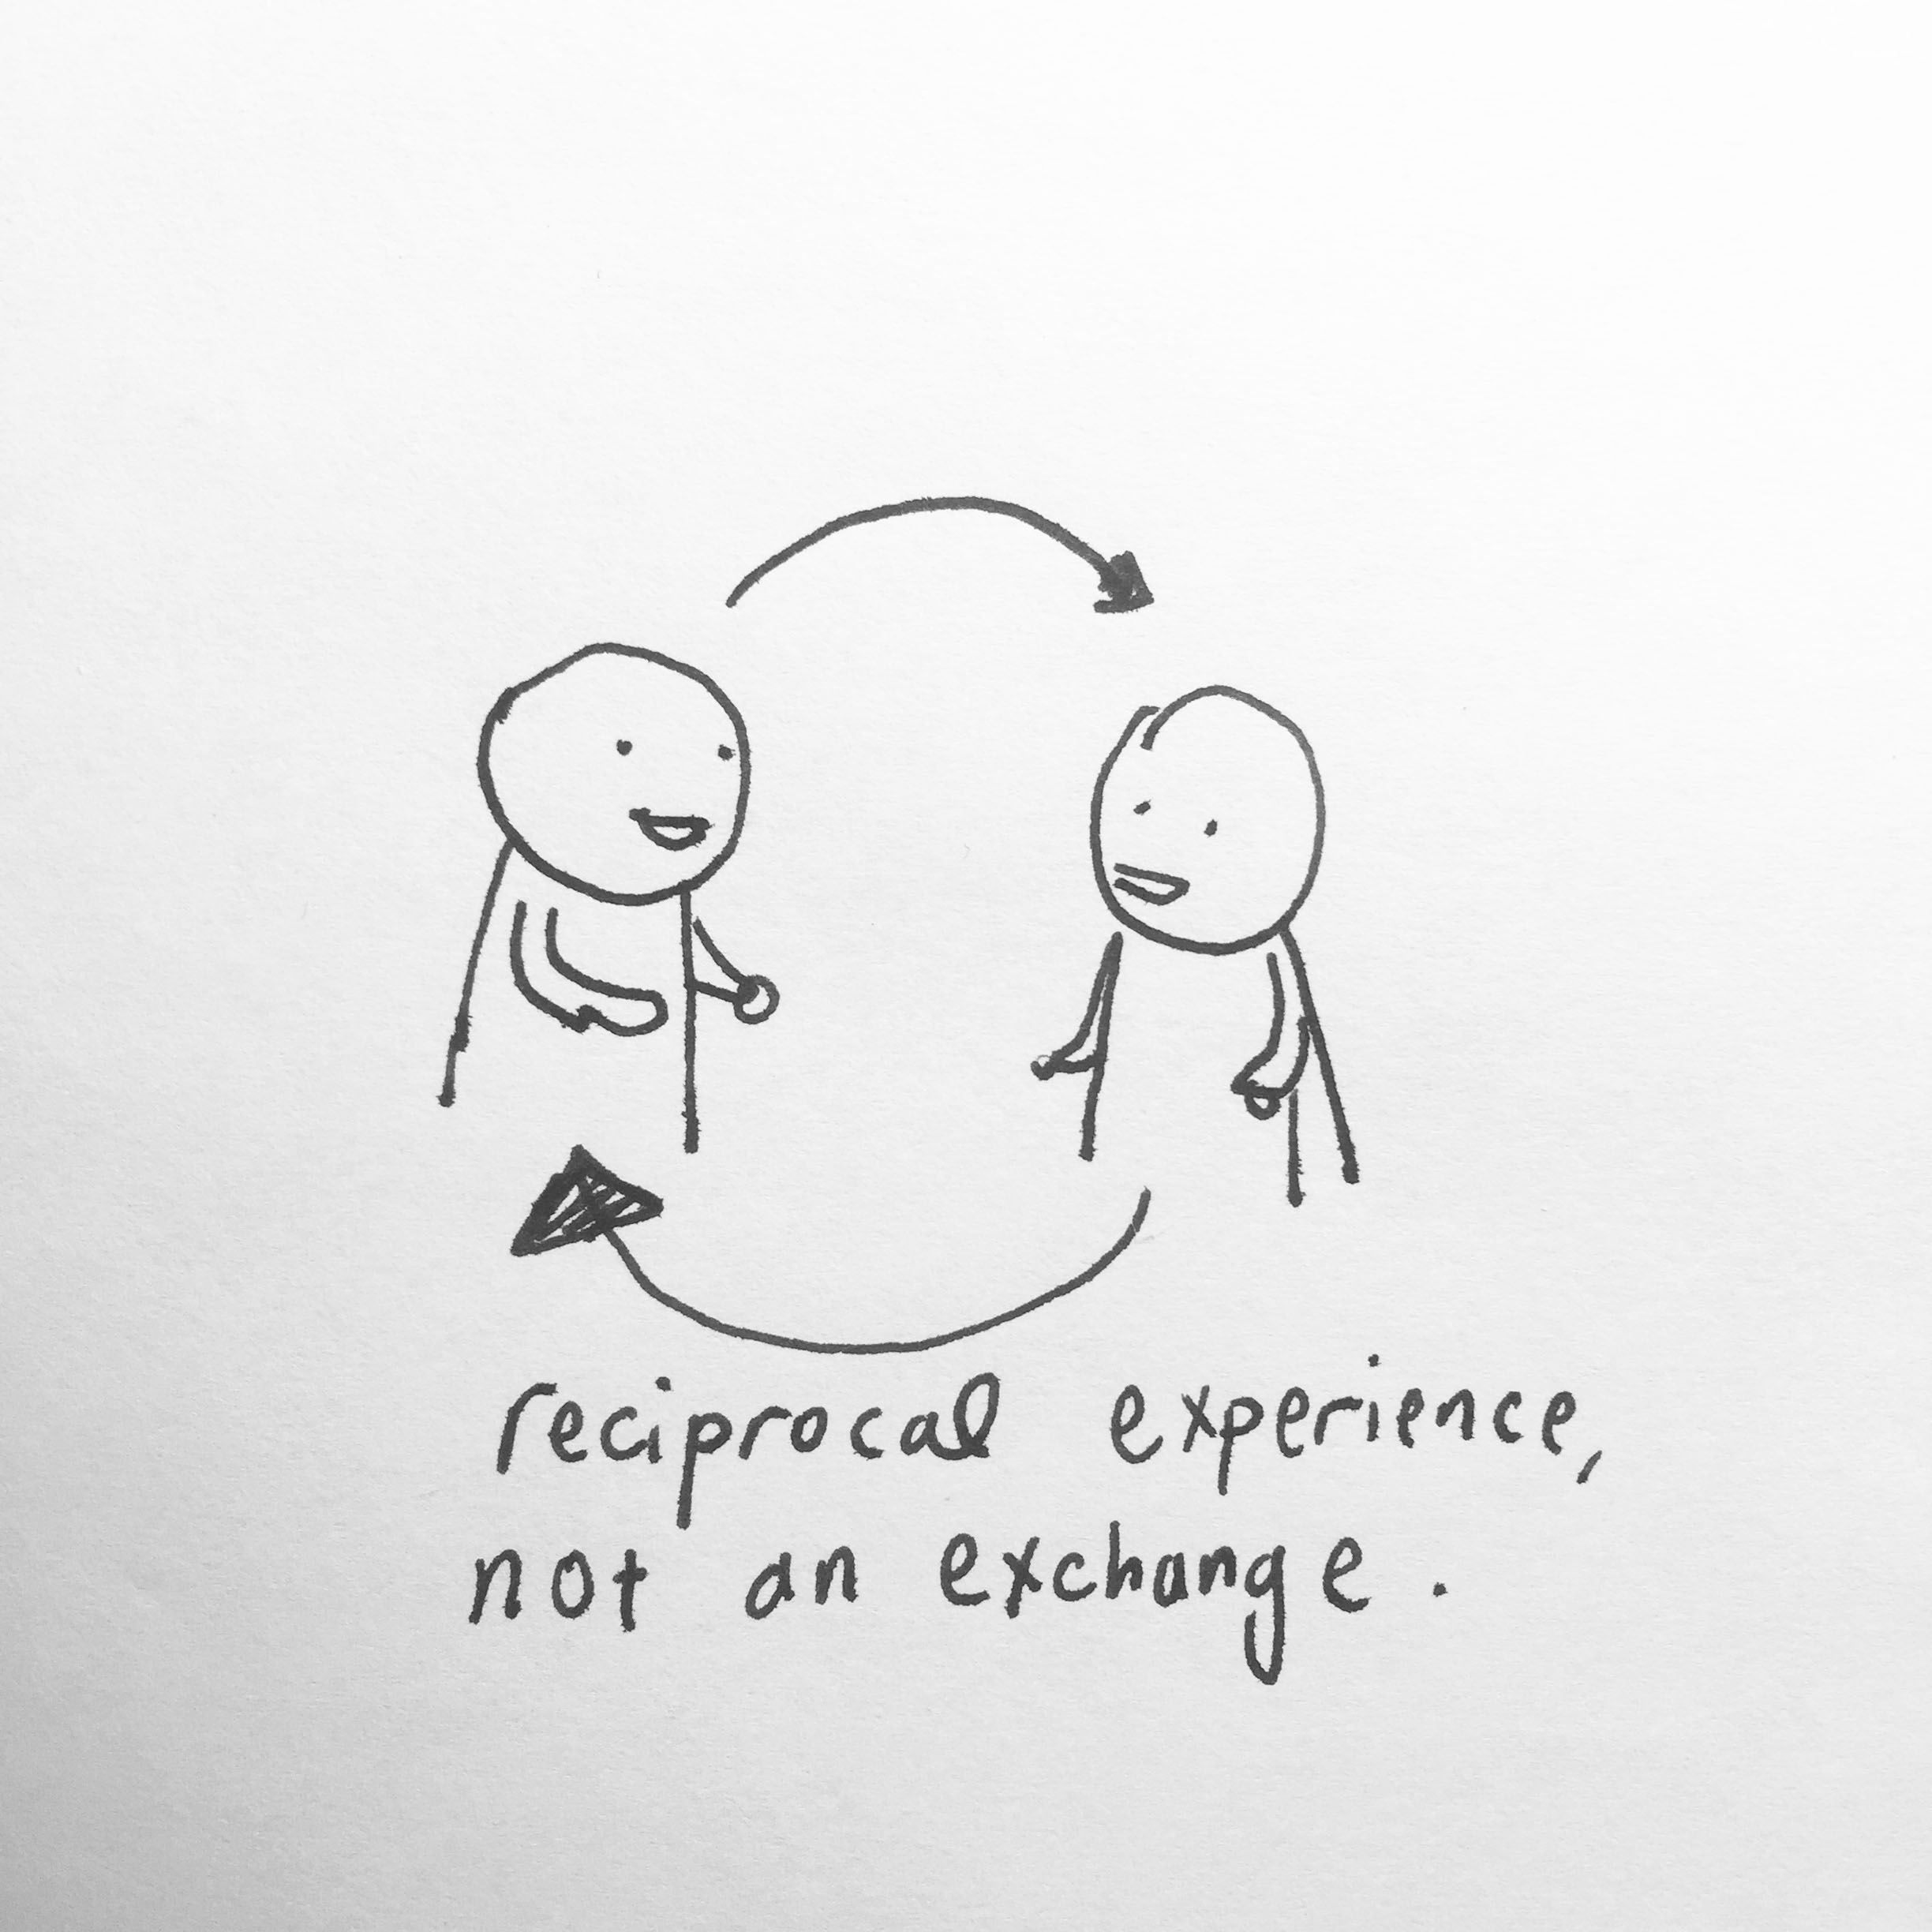 reciprocal experience,
not an exchange.